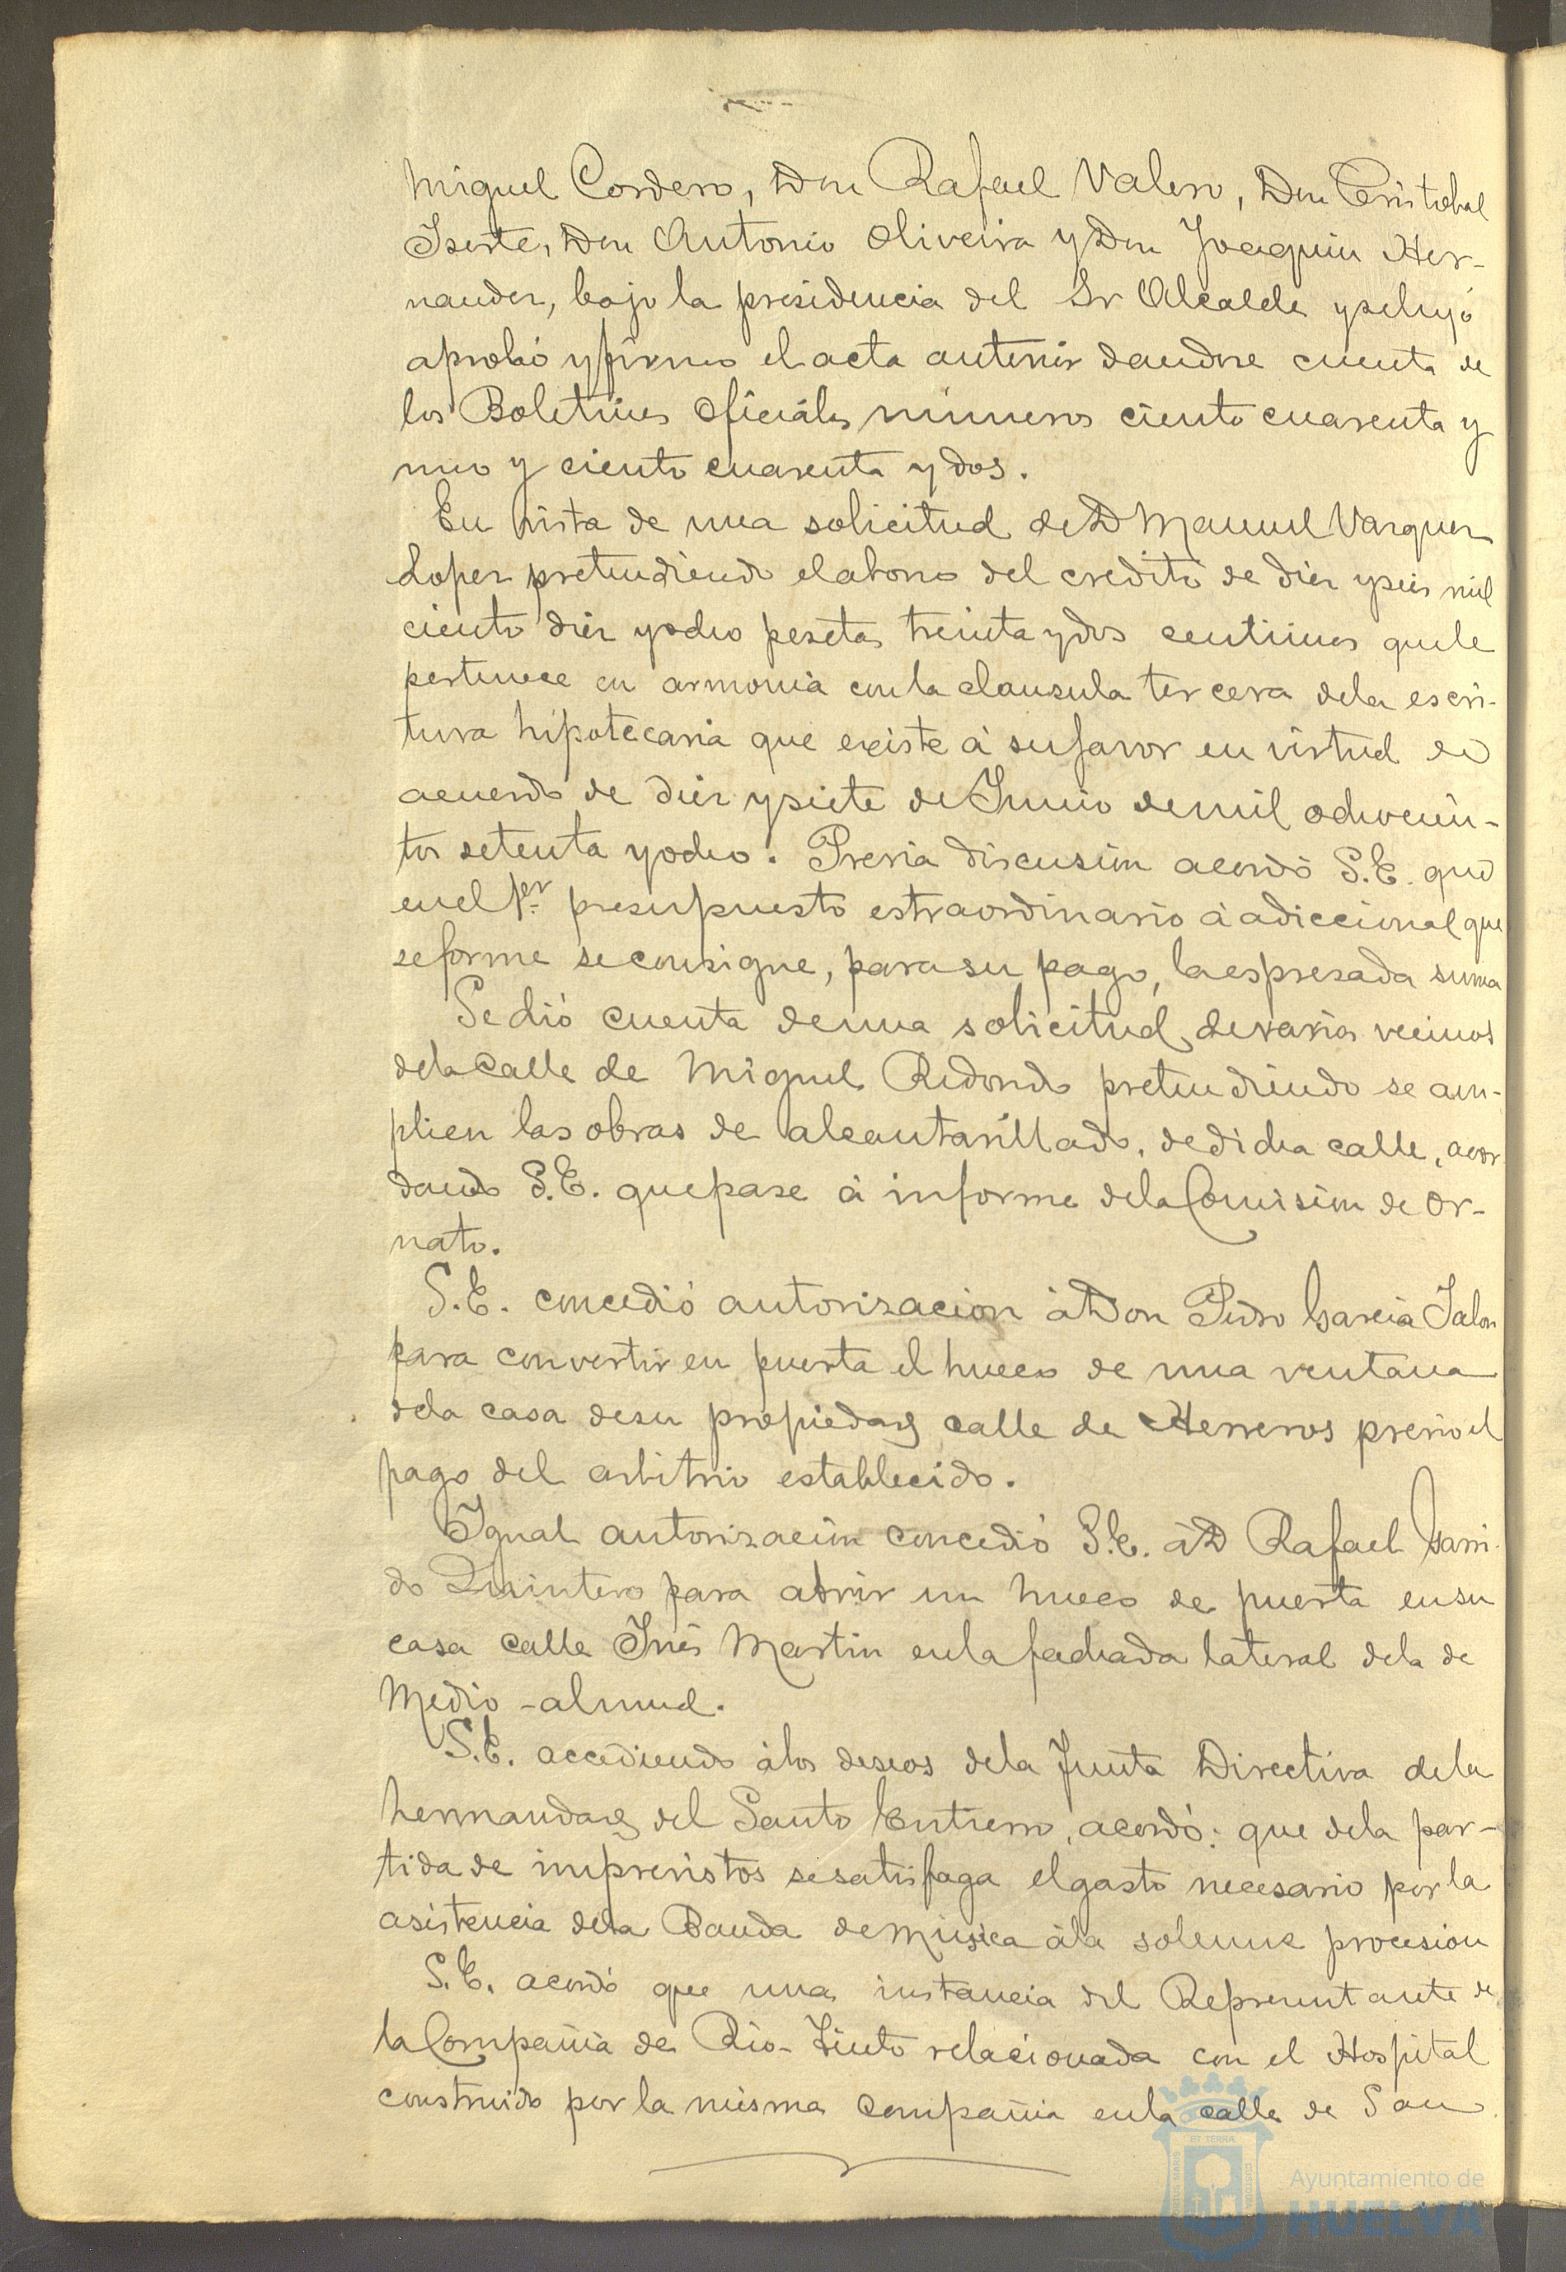 Miguel Cordero, Don Rafael Valero, Don Cristobal
Iserte, Don Antonio Oliveira y Don Joaquin Her-
nandez, bajo la presidencia del Sr Alcalde y se leyó
aprobó y firmo el acta anterior dandose cuenta de
los Boletines oficiáles números ciento cuarenta y
uno y ciento cuarenta y dos.
En vista de una solicitud de D Manuel Vazquez
Lopez pretendiendo el abono del credito de diez y seis mil
ciento diez y ocho pesetas treinta y dos centimos que le
pertenece en armonia con la clausula tercera de la escri-
tura hipotecaria que existe á su favor en virtud de
acuerdo de diez y siete de Junio de mil ochocien-
tos setenta y ocho. Previa discusión acordó S.E. que
en el pr presupuesto estraordinario ó adiccional que
se forme se consigne, para su pago, la espresada suma
Se dió cuenta de una solicitud de varios vecinos
de la calle de Miguel Redondo pretendiendo se am-
plien las obras de alcantarillado, de dicha calle, acor
dando S.E. que pase á informe de la Comisión de Or-
nato.
S.E. concedió autorizacion á Don Pedro Garcia Jalon
para convertir en puerta el hueco de una ventana
de la casa de su propiedad calle de Herreros previo el
pago del arbitrio establecido.
Igual autorización concedió S.E. á D Rafael Garri-
do Quintero para abrir un hueco de puerta en su
casa calle Inés Martin en la fachada lateral de la de
Medio-almud.
S.E. accediendo á los deseos de la Junta Directiva de la
hermandad del Santo Entierro, acordó: que de la par-
tida de imprevistos se satisfaga el gasto necesario por la
asistencia de la Banda de Música á la solemne procesion
S.E. acordó que una instancia del Representante de
la Compañia de Rio-Tinto relacionada con el Hospital
construido por la misma compañia en la calle de San
Ayuntamiento de
HUELVA